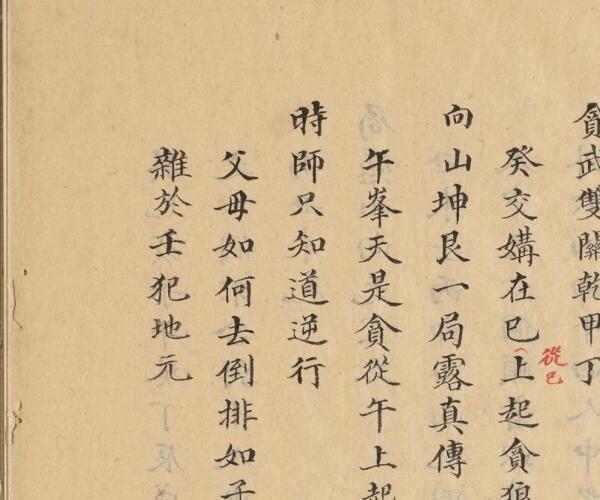 貪武雙關乾甲丁
癸交媾在巳上起貪狼
從巳
向山坤艮一局露真傳
午峯天是貪從午上起
時師只知道逆行
父母如何去倒排如子
雜於壬犯地元